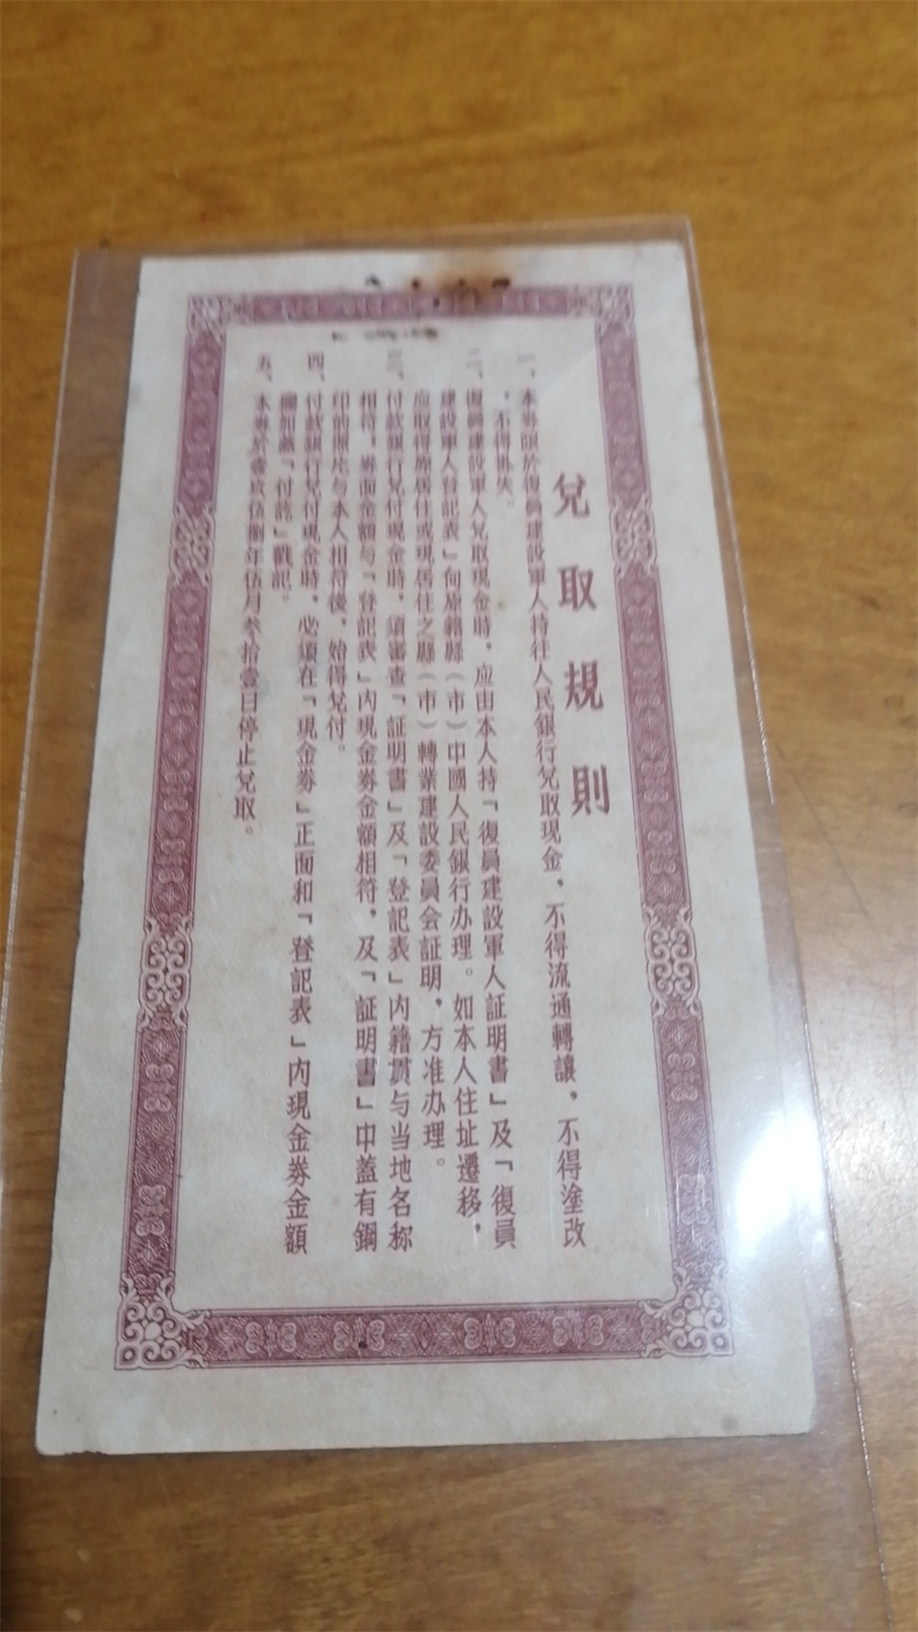 兌取規則
一、本券限於復員建設軍人持往人民銀行兌取現金，不得流通轉讓，不得塗改
，不得遺失。
二、復員建設軍人兌取現金時，应由本人持「復員建設軍人証明書」及「復員
建設軍人登記表」向原籍縣（市）中國人民銀行办理。如本人住址遷移，
应取得原居住或現居住之縣（市）轉業建設委員会証明，方准办理。
三、付款銀行兌付現金時，須審查「証明書」及「登記表」内籍貫与当地名称
相符，券面金額与「登記表」内現金券金額相符，及「証明書」中蓋有鋼
印的照片与本人相符後，始得兌付。
四、付款銀行兌付現金時，必須在「現金券」正面和「登記表」内現金券金額
欄加蓋「付訖」戳記。
五、本券於壹玖伍捌年伍月叁拾壹日停止兌取。